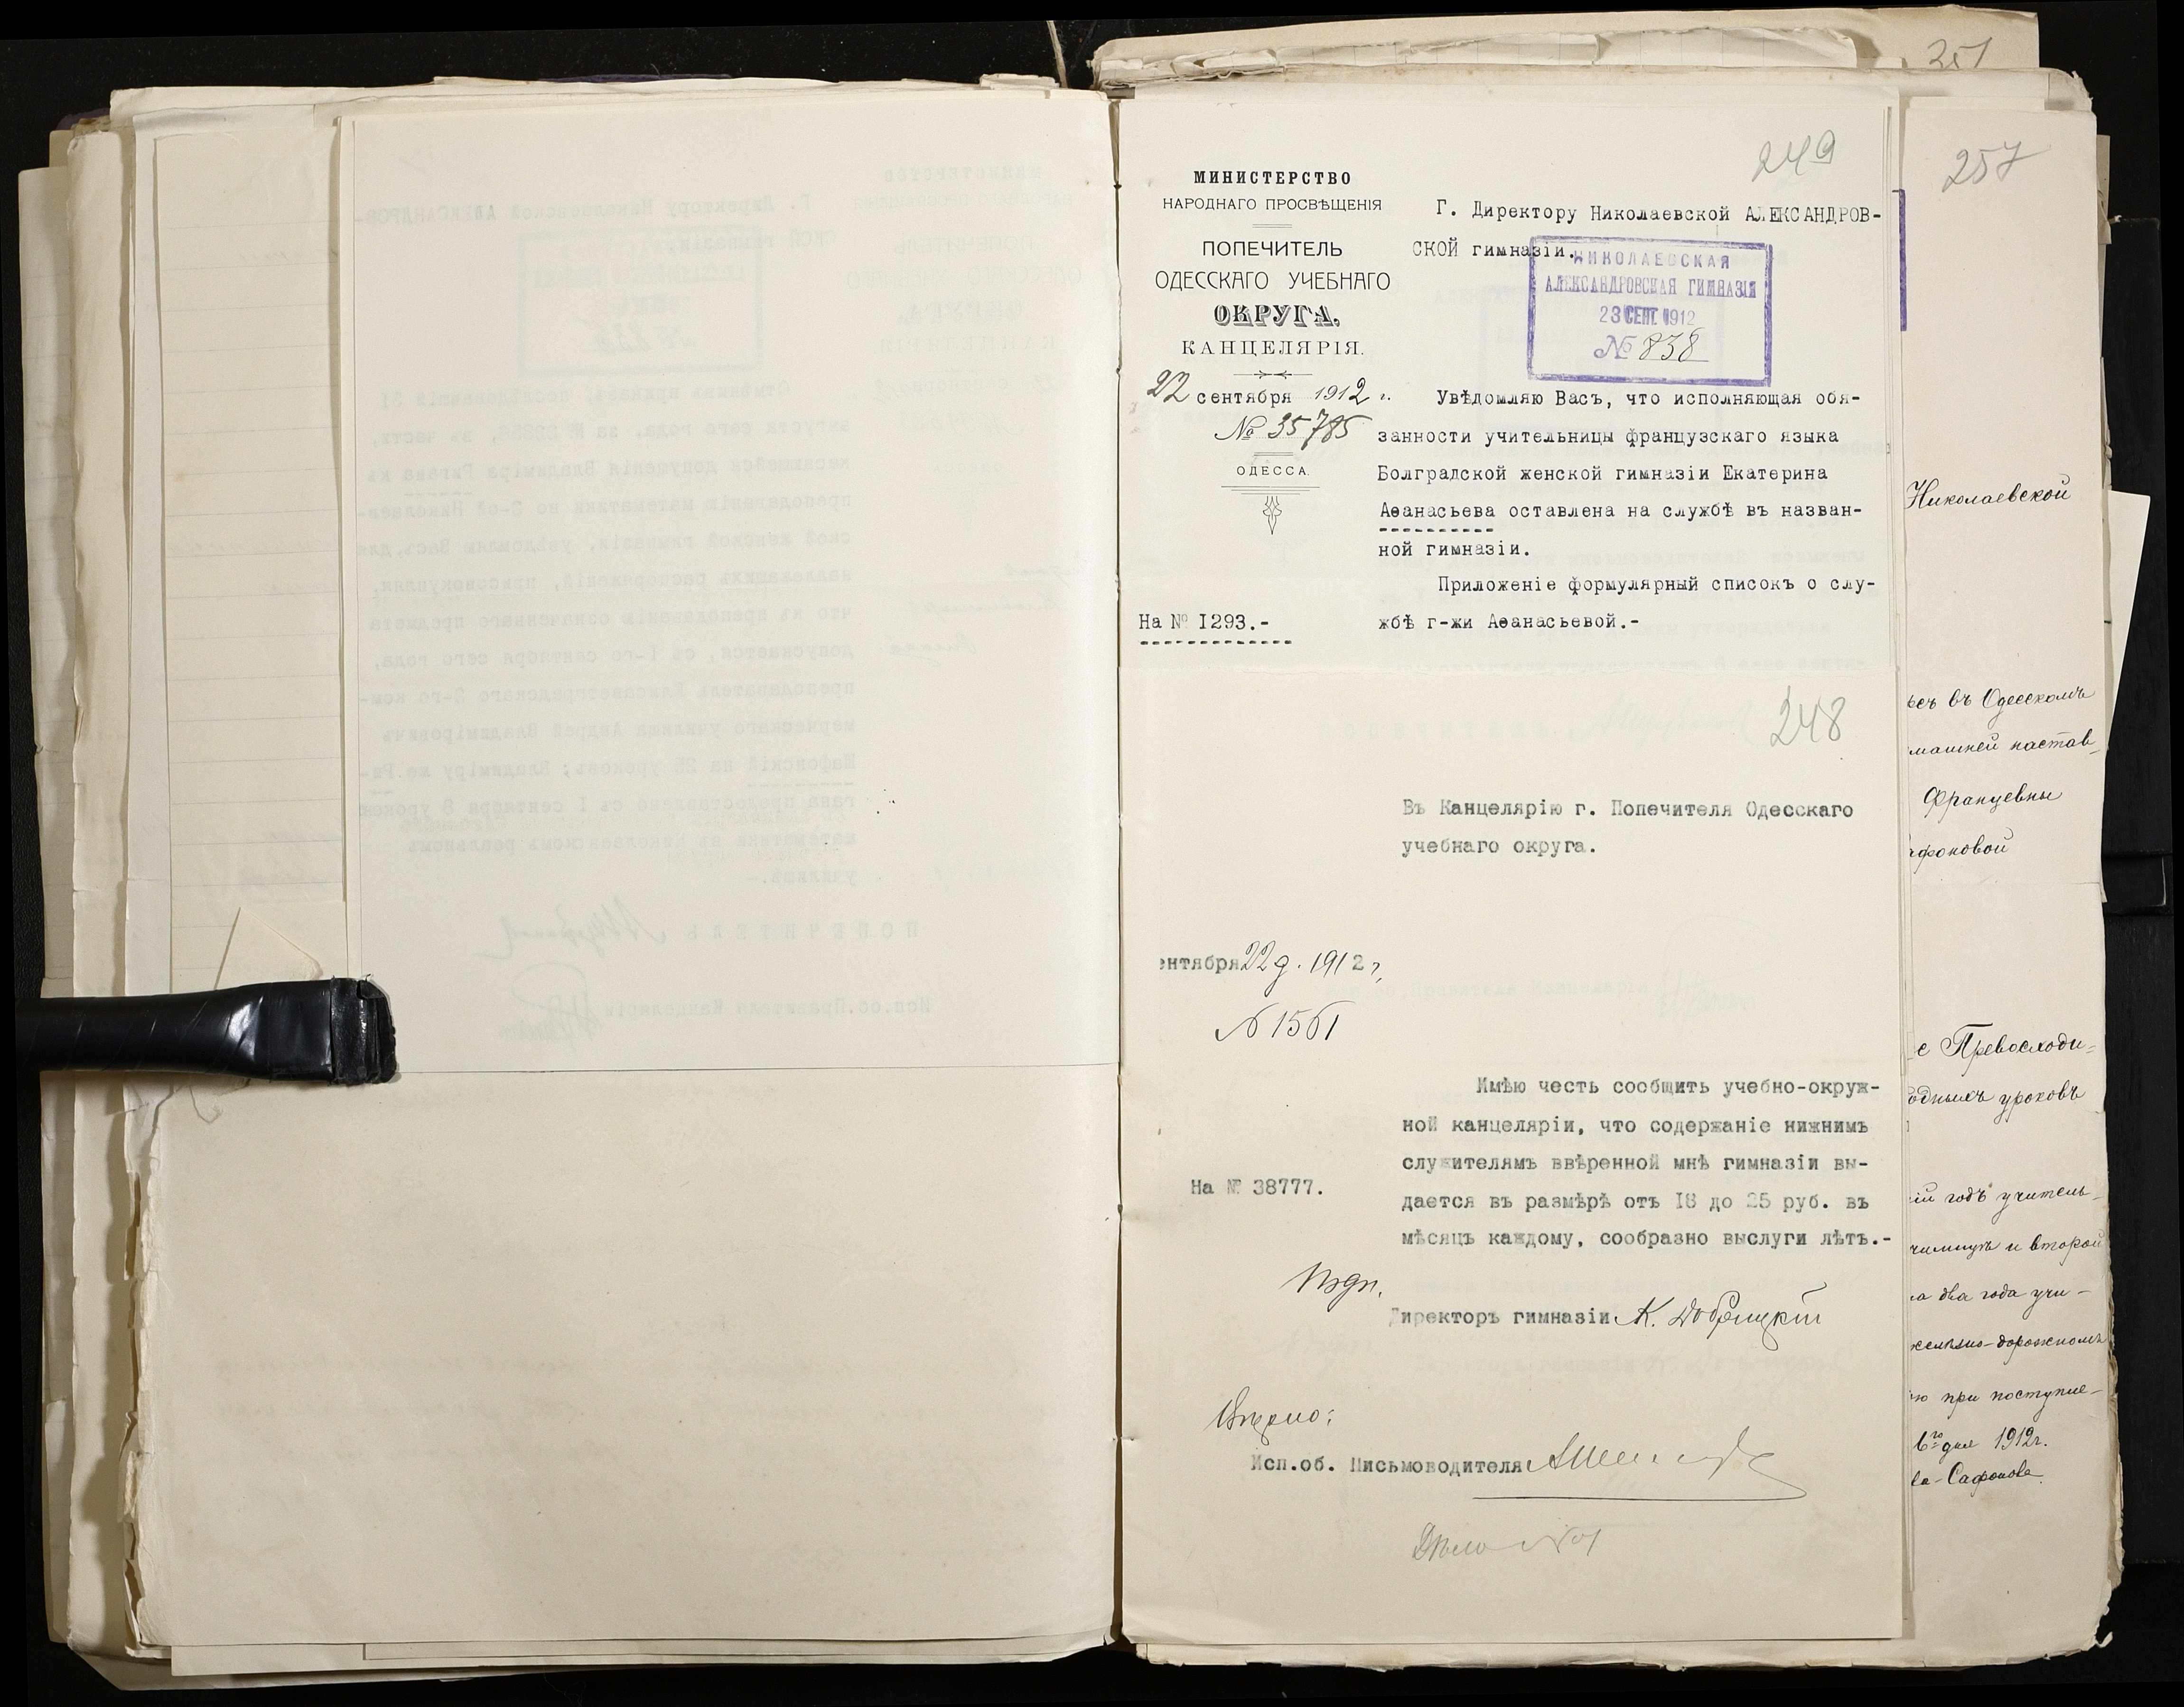 251
257
249
МИНИСТЕРСТВО
НАРОДНАГО ПРОСВѢЩЕНІЯ
ПОПЕЧИТЕЛЬ
ОДЕССКАГО УЧЕБНАГО
ОКРУГА,
КАНЦЕЛЯРІЯ.
22 сентября 1912 г.
№ 35785
ОДЕССА.
На № I293.-
Г. Директору Николаевской АЛЕКСАНДРОВ-
СКОЙ гимназіи.
НИКОЛАЕВСКАЯ
АЛЕКСАНДРОВСКАЯ ГИМНАЗІЯ
23 СЕНТ. 1912
№ 838
Увѣдомляю Васъ, что исполняющая обя-
занности учительницы французскаго языка
Болградской женской гимназіи Екатерина
Аѳанасьева оставлена на службѣ въ назван-
ной гимназіи.
Приложеніе формулярный списокъ о слу-
жбѣ г-жи Аѳанасьевой.-
248
Въ Канцелярію г. Попечителя Одесскаго
учебнаго округа.
ентября 22 д. 1912 г.
№ 1561
На № 38777.
Имѣю честь сообщить учебно-окруж-
ной канцеляріи, что содержаніе нижнимъ
служителямъ ввѣренной мнѣ гимназіи вы-
дается въ размѣрѣ отъ I8 до 25 руб. въ
мѣсяцъ каждому, сообразно выслуги лѣтъ.-
Подп.
Директоръ гимназіи К. Добрицкій
Вѣрно:
Исп.об. Письмоводителя
Дѣло №1
Николаевской
въ Одесскомъ
машней настав-
Францевны
афоновой
е Превосходи-
одныхъ уроковъ
ій годъ учитель-
и второй
а два года учи-
желѣзно-дорожномъ
ю при поступле-
6го дня 1912г.
ва-Сафонова.